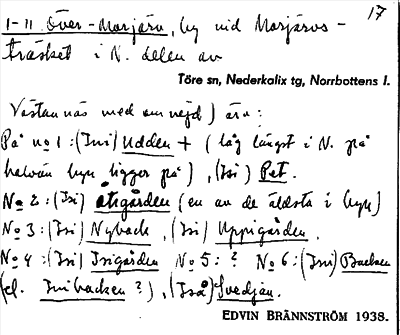 17
1-11 Över-Morjärv, by vid Morjärvs-
träsket i N. delen av
Töre sn, Nederkalix tg, Norrbottens l.
Västannäs med omnejd) äro:
På no 1: (Ini) Udden + (låg längst i N. på
halvön byn ligger på), (Isi) Pet.
No 2: (Isi) åtigården (en av de äldsta i byn)
No 3: (Isi) Nyback, (Isi) Uppigården.
No 4: (Isi) Irigården No 5: ? No 6: (Ini) Backen
(el. Inibacken?), (Iså) Svedjan.
EDVIN BRÄNNSTRÖM 1938.